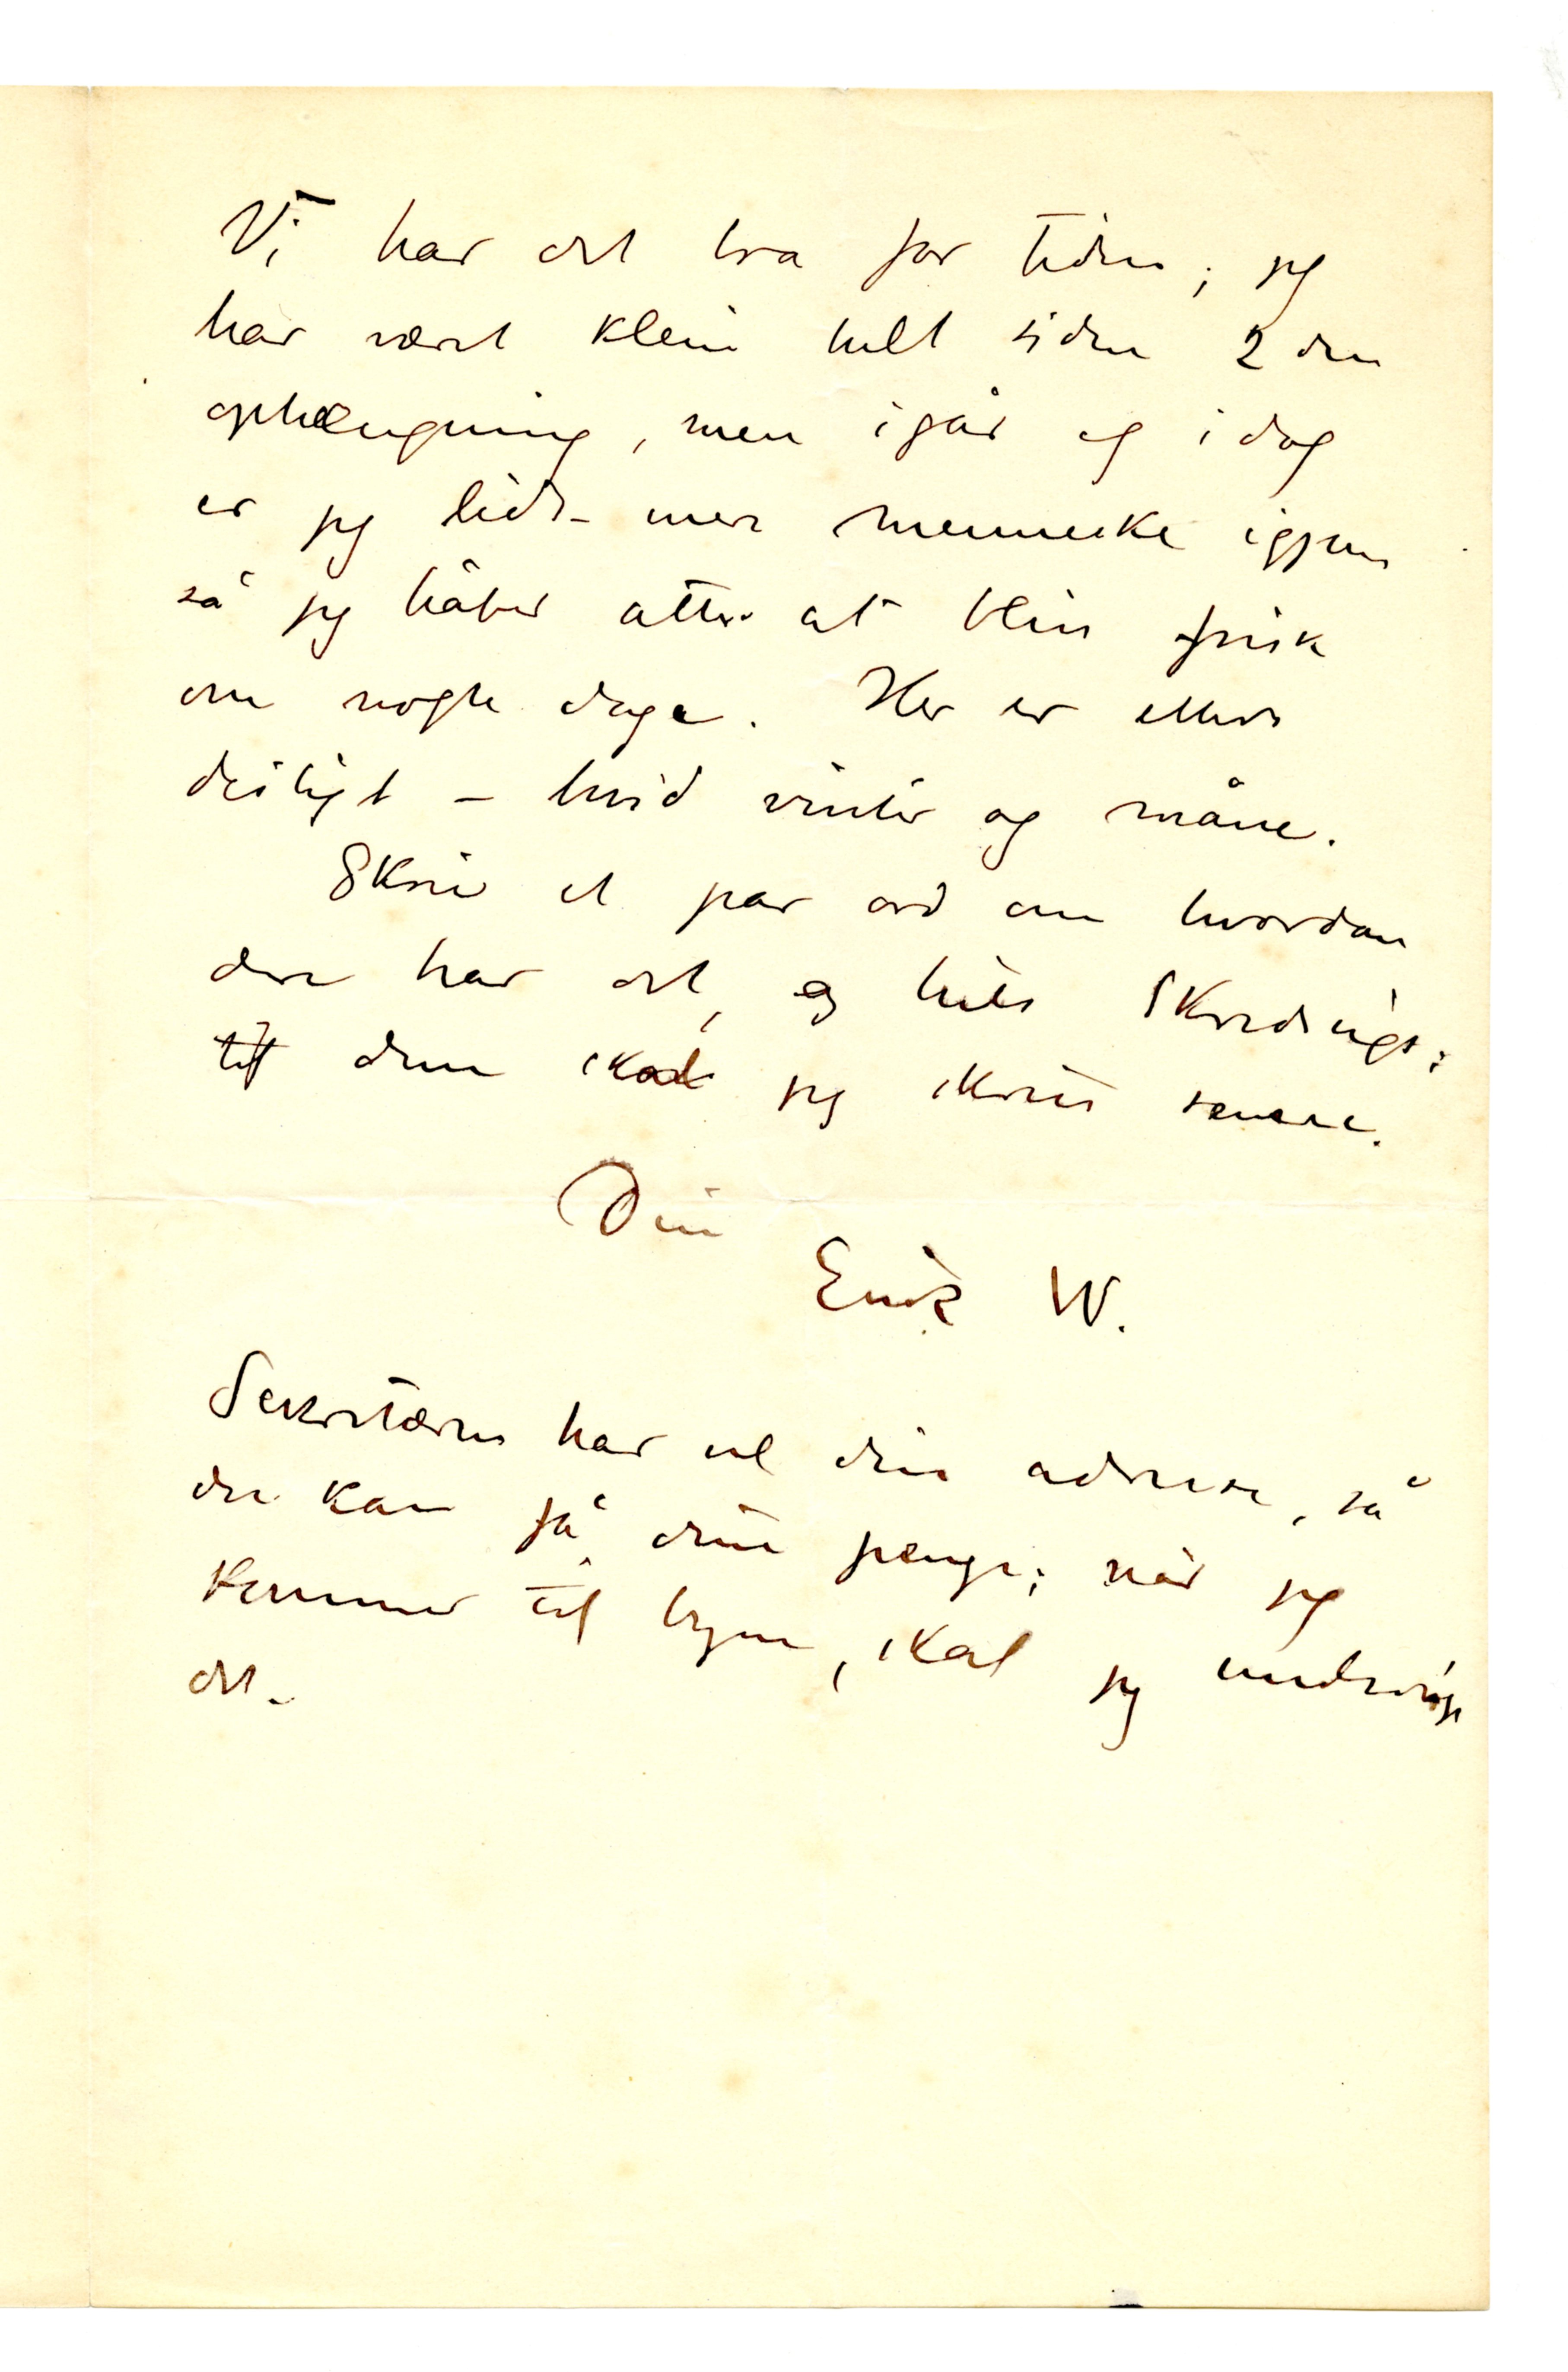 Vi har det bra for tiden; jeg
har vært klein helt siden 2den
ophængning, men igår og idag
er jeg lidt mer menneske igjen
så jeg håber atter at bliv frisk
om nogle dage. Her er ellers
deiligt – hvid vinter og måne.
Skriv et par ord om hvordan
dere har det, og hils Skredsvigs;
til dem skal jeg skrive senere.
Din
Erik W.
Sekretæren har vel din adresse, så
du kan få dine penge; når jeg
kommer til byen, skal jeg undersøge
det.